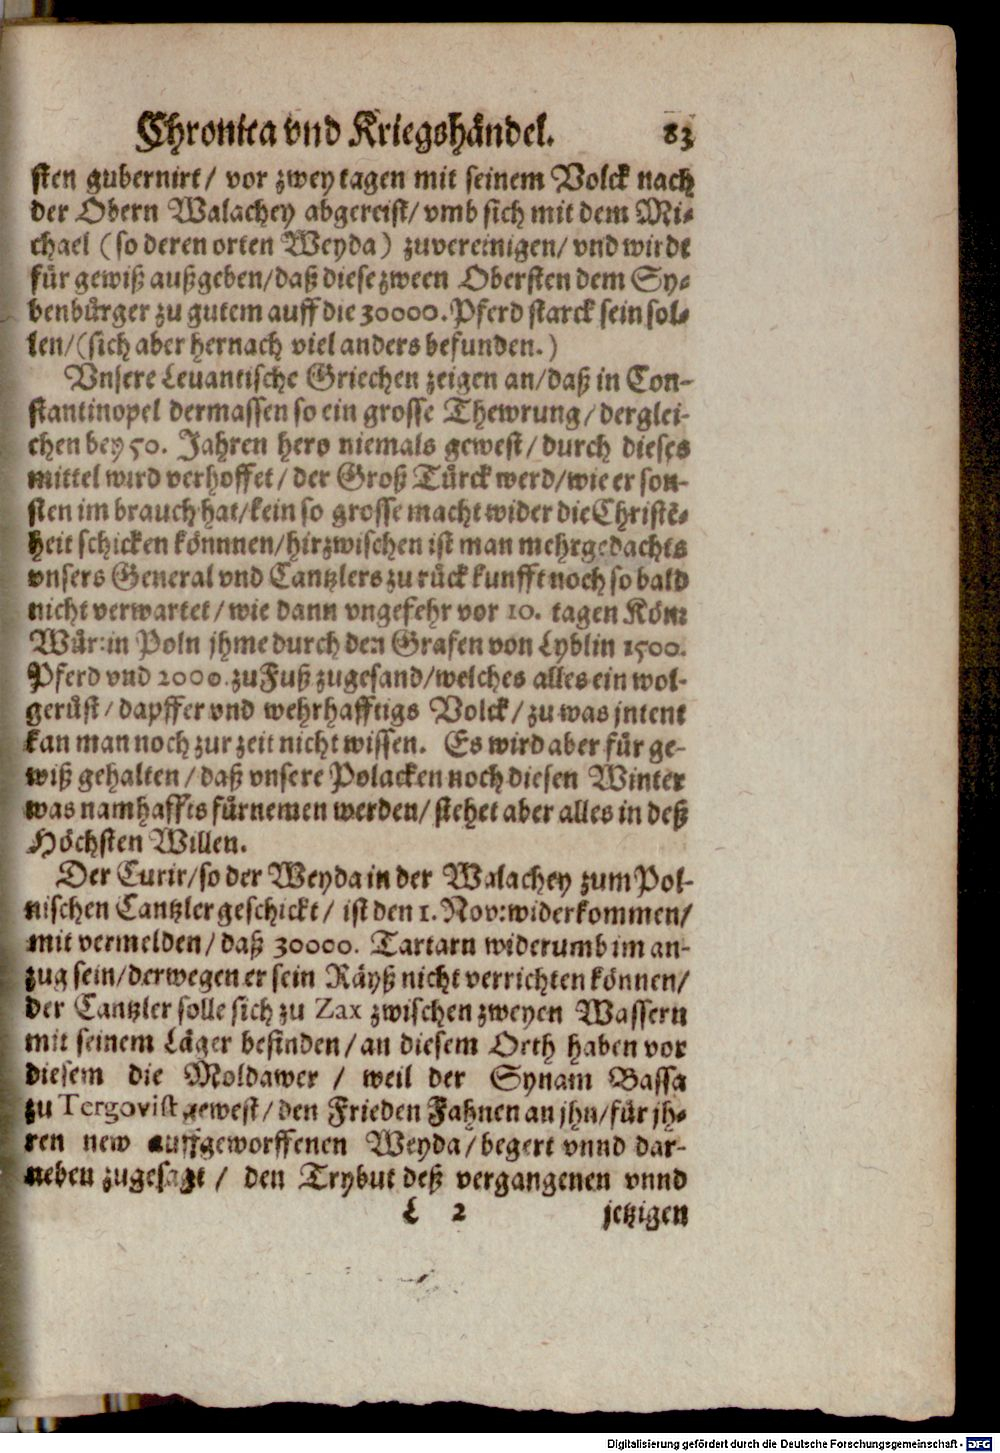 Chronica vnd Kriegshändel. 83
sten gubernirt/ vor zwey tagen mit seinem Volck nach
der Obern Walachey abgereist/ vmb sich mit dem Mi-
chael (so deren orten Weyda) zuvereinigen/ vnd wirdt
für gewiß außgeben/daß diese zween Obersten dem Sy-
benbürger zu gutem auff die 30000. Pferd starck sein sol-
len/(sich aber hernach viel anders befunden.)
Vnsere Levantische Griechen zeigen an/daß in Con-
stantinopel dermassen so ein grosse Thewrung/derglei-
chen bey 50. Jahren hero niemals gewest/durch dieses
mittel wird verhoffet/ der Groß Türck werd/wie er son-
sten im brauch hat/kein so grosse macht wider die Christē-
heit schicken könnnen/hirzwischen ist man mehrgedachts
vnsers General vnd Cantzlers zu rück kunfft noch so bald
nicht verwartet/wie dann vngefehr vor 10. tagen Kön:
Wür: in Poln jhme durch den Grafen von Lyblin 1500.
Pferd vnd 2000. zu Fuß zugesand/welches alles ein wol-
gerüst/dapffer vnd wehrhafftigs Volck/zu was jntent
kan man noch zur zeit nicht wissen. Es wird aber für ge-
wiß gehalten/daß vnsere Polacken noch diesen Winter
was namhaffts fürnemen werden/ stehet aber alles in deß
Höchsten Willen.
Der Curir/so der Weyda in der Walachey zum Pol-
nischen Cantzler geschickt/ ist den 1. Nov: widerkommen/
mit vermelden/daß 30000. Tartarn widerumb im an-
zug sein/derwegen er sein Räyß nicht verrichten können/
der Cantzler solle sich zu Zax zwischen zweyen Wassern
mit seinem Läger befinden/an diesem Orth haben vor
diesem die Moldawer / weil der Synam Bassa
zu Tergovist gewest/den Frieden Fahnen an jhn/für jh-
ren new auffgeworffenen Weyda/begert vnnd dar-
neben zugesagt / den Trybut deß vergangenen vnnd
L 2 jetzigen
Digitalisierung gefördert durch die Deutsche Forschungsgemeinschaft - DFG